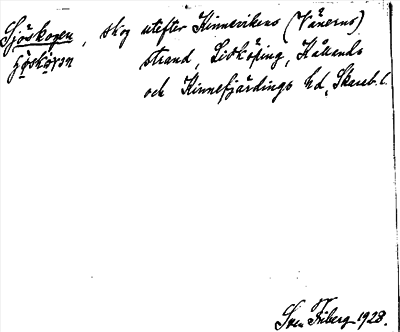 Sjöskogen, skog utefter Kinnevikens (Vänerns)
sjöskóɤən strand, Lidköping, Kållands
och Kinnefjärdings hd, Skarab. l.
Sven Friberg 1928.